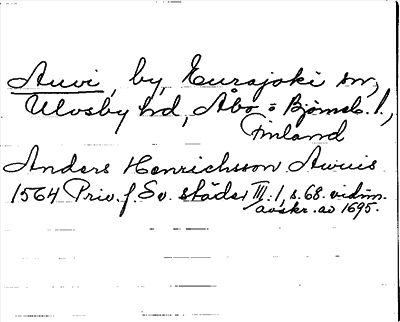 Auvi, by, Eurajoki sn,
Ulvsby hd, Åbo = Björneb. l.,
Finland
Anders Henrichsson Awuis
1564 Priv. f. Sv. städer III:1, s. 68. vidim.
avskr. av 1695.